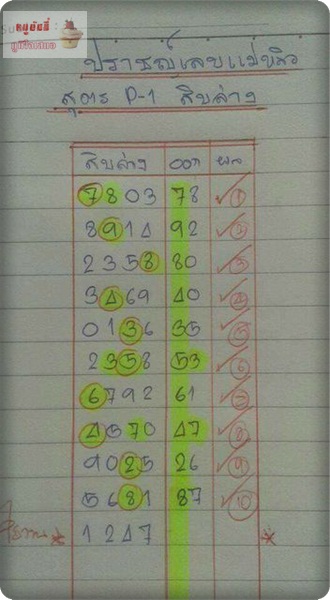 ปราชญ์เลขแม่นิว
สูตร P-1 สิบล่าง
สิบล่าง ออก ผล
7803 78 ✓ 1
8914 92 ✓ 2
2358 80 ✓ 3
3469 40 ✓ 4
0136 35 ✓ 5
2358 53 ✓ 6
6792 61 ✓ 7
4570 47 ✓ 8
9025 26 ✓ 9
5681 87 ✓ 10
1247